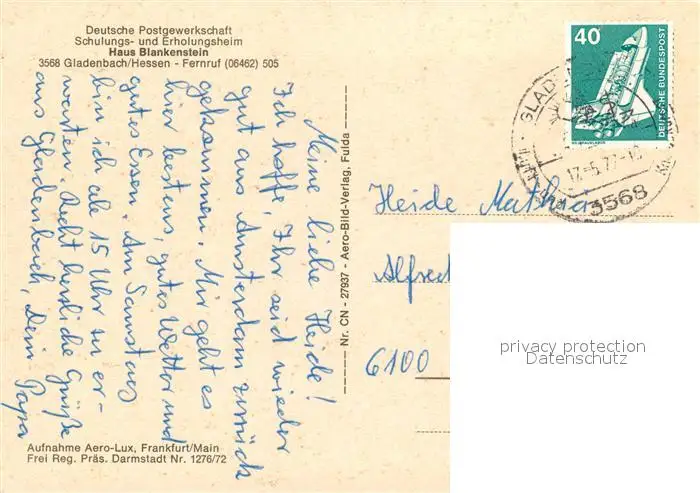 Deutsche Postgewerkschaft
Schulungs- und Erholungsheim
Haus Blankenstein
3568 Gladenbach/Hessen - Fernruf (06462) 505
Meine liebe Heide!
Ich hoffe, Ihr seid wieder
gut aus Amsterdam zurück
gekommen. Mir geht es
hier bestens, gutes Wetter und
gutes Essen. Am Samstag
bin ich ab 15 Uhr zu er-
warten. Recht herzliche Grüße
aus Gladenbach, Dein
Papa
Aufnahme Aero-Lux, Frankfurt/Main
Frei Reg. Präs. Darmstadt Nr. 1276/72
Nr. CN - 27937 - Aero-Bild-Verlag, Fulda
40
DEUTSCHE BUNDESPOST
17.-5.77-1
3568
Heide
Alfred
6100
privacy protection
Datenschutz